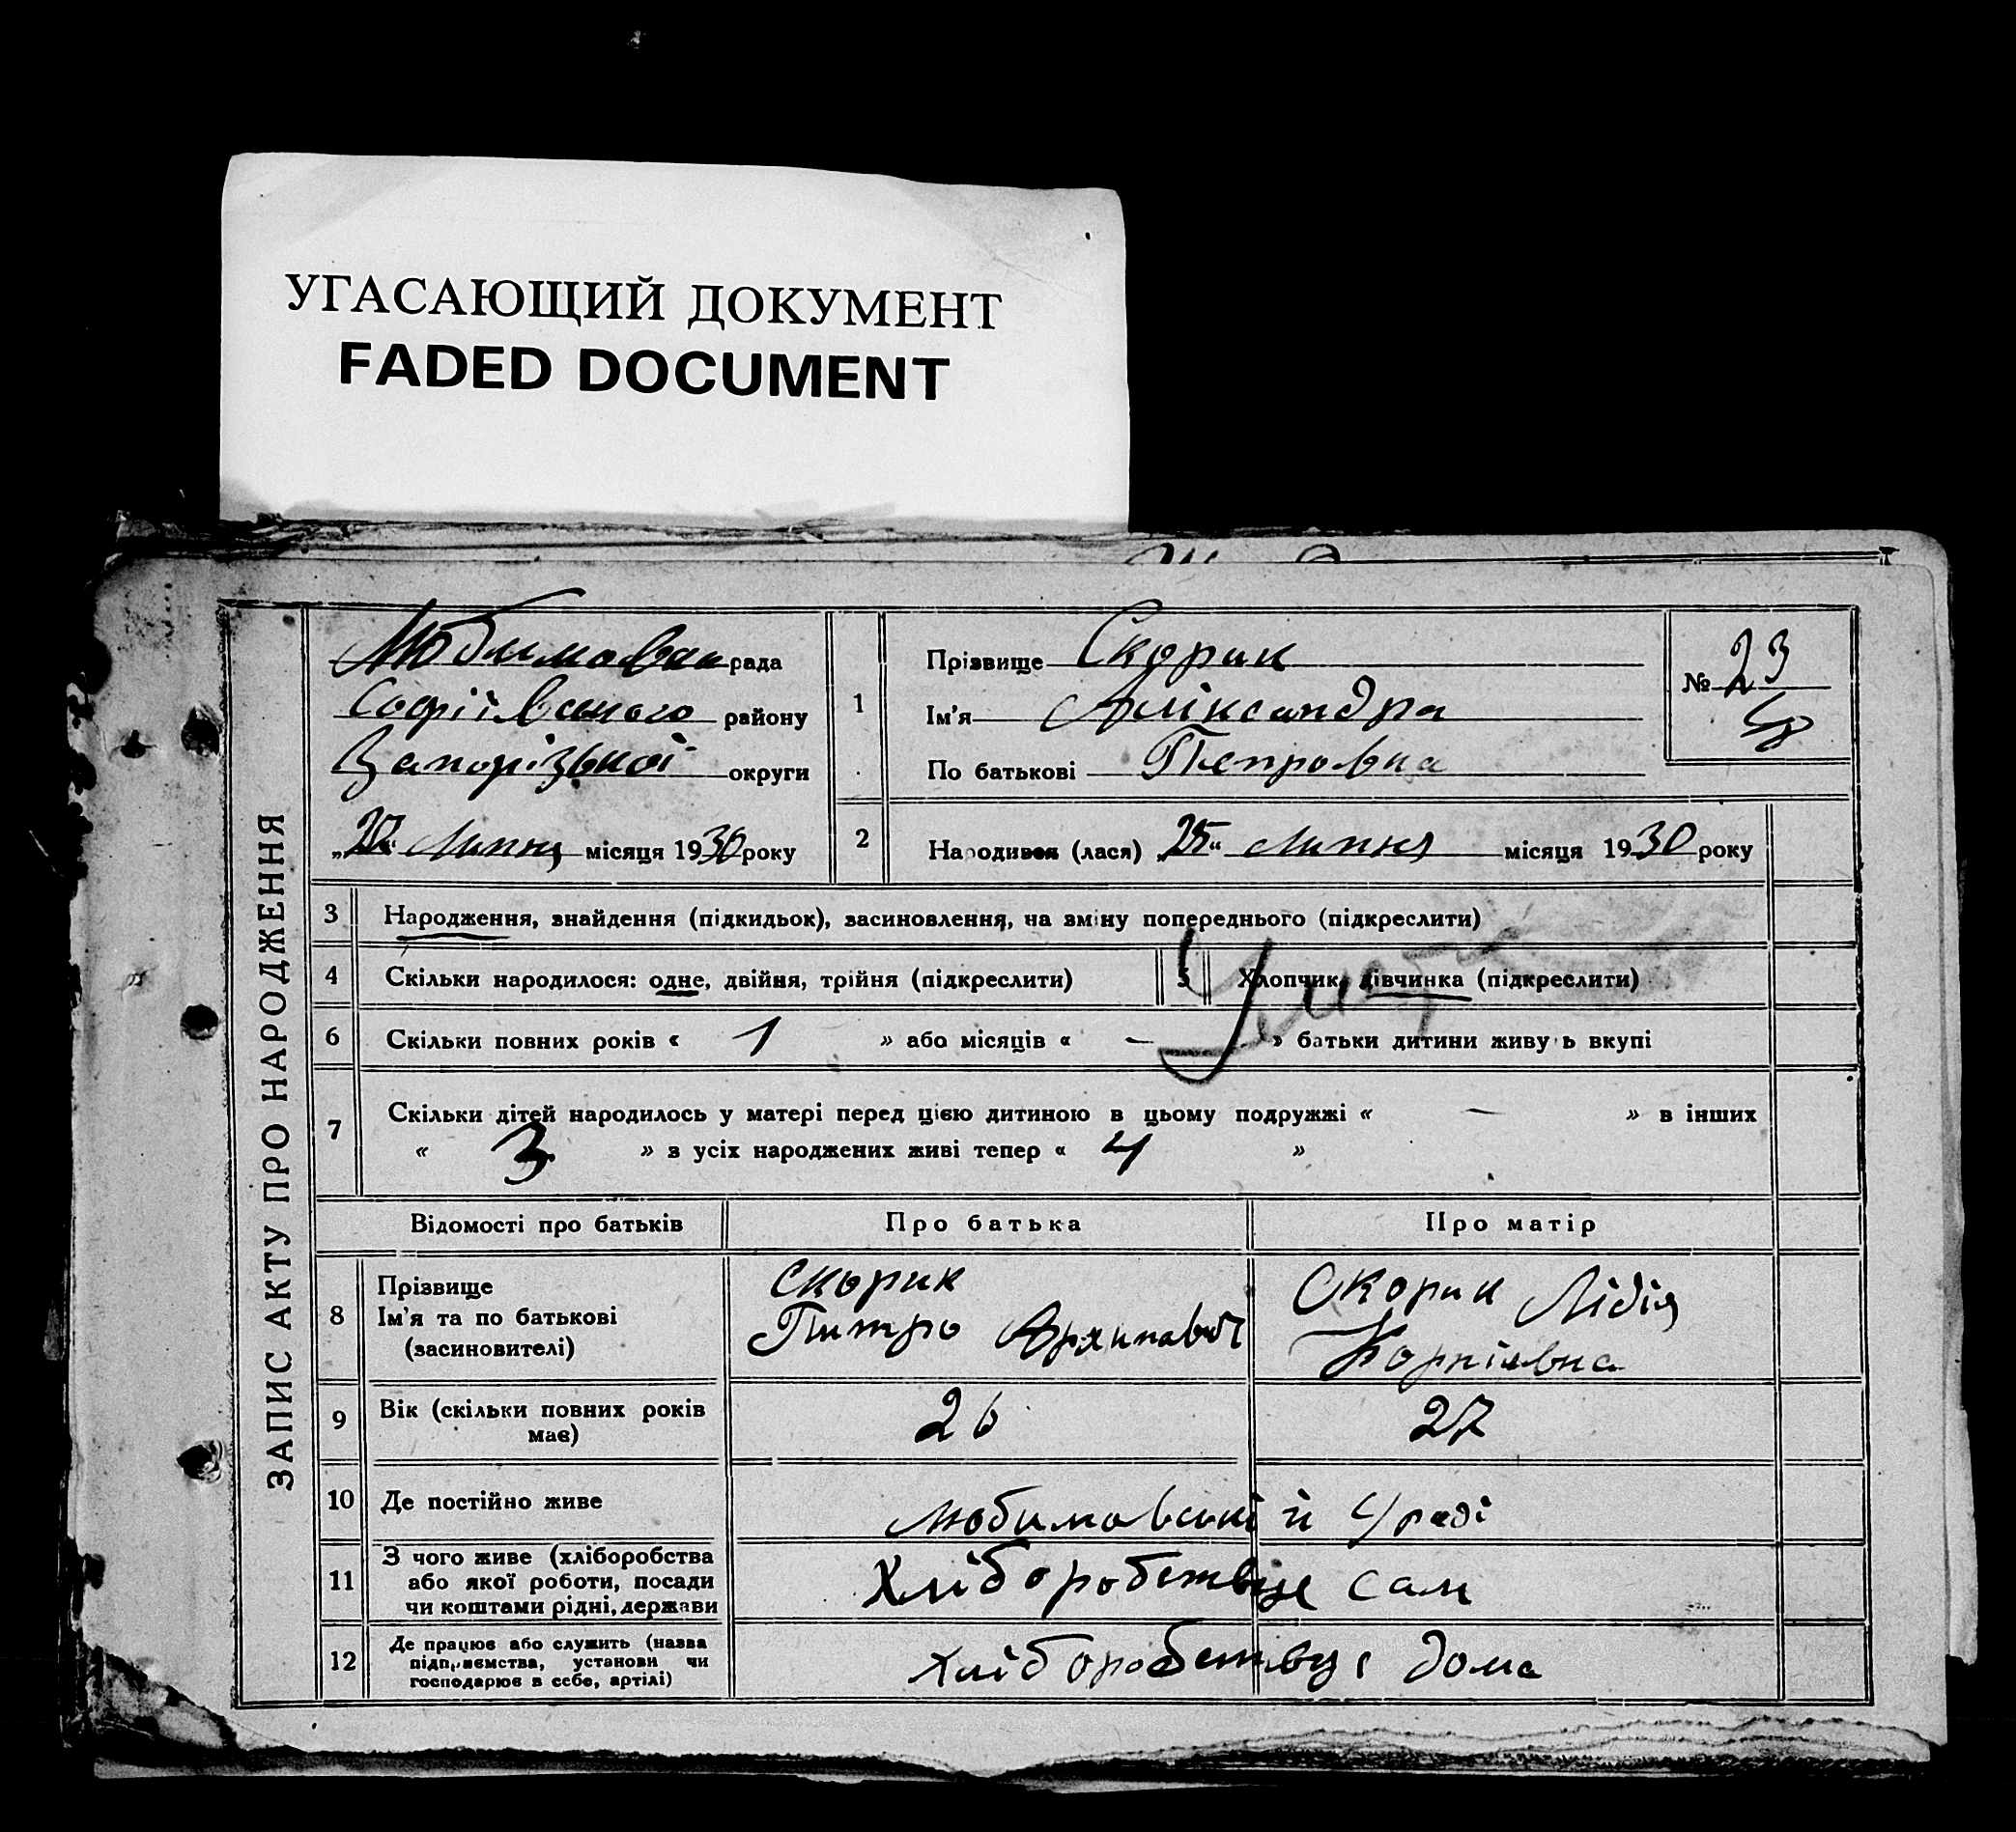 УГАСАЮЩИЙ ДОКУМЕНТ
FADED DOCUMENT
ЗАПИС АКТУ ПРО НАРОДЖЕННЯ
рада
Софіївського району
Запорізької округи
„27“ Липня місяця 1930 року
1
Прізвище Скорик
Ім'я Аліксандра
По батькові Петровна
№ 23
2
Народився (лася) „25“ Липня місяця 1930 року
3 Народження, знайдення (підкидьок), засиновлення, на зміну попереднього (підкреслити)
4 Скільки народилося: одне, двійня, трійня (підкреслити)
5 Хлопчик, дівчинка (підкреслити)
6 Скільки повних років « 1 » або місяців « — » батьки дитини живуть вкупі
7 Скільки дітей народилось у матері перед цією дитиною в цьому подружжі « — » в інших
« 3 » з усіх народжених живі тепер « 4 »
Відомості про батьків Про батька Про матір
8 Прізвище
Ім'я та по батькові
(засиновителі)
Скорик
Питро Архипович
Скорик Лідія
Корніівна
9 Вік (скільки повних років
має)
26 27
10 Де постійно живе
Любимовський с/раді
11 З чого живе (хліборобства
або якої роботи, посади
чи коштами рідні, держави
Хліборобствує сам
12 Де працює або служить (назва
підприємства, установи чи
господарює в себе, артілі)
хліборобствує дома